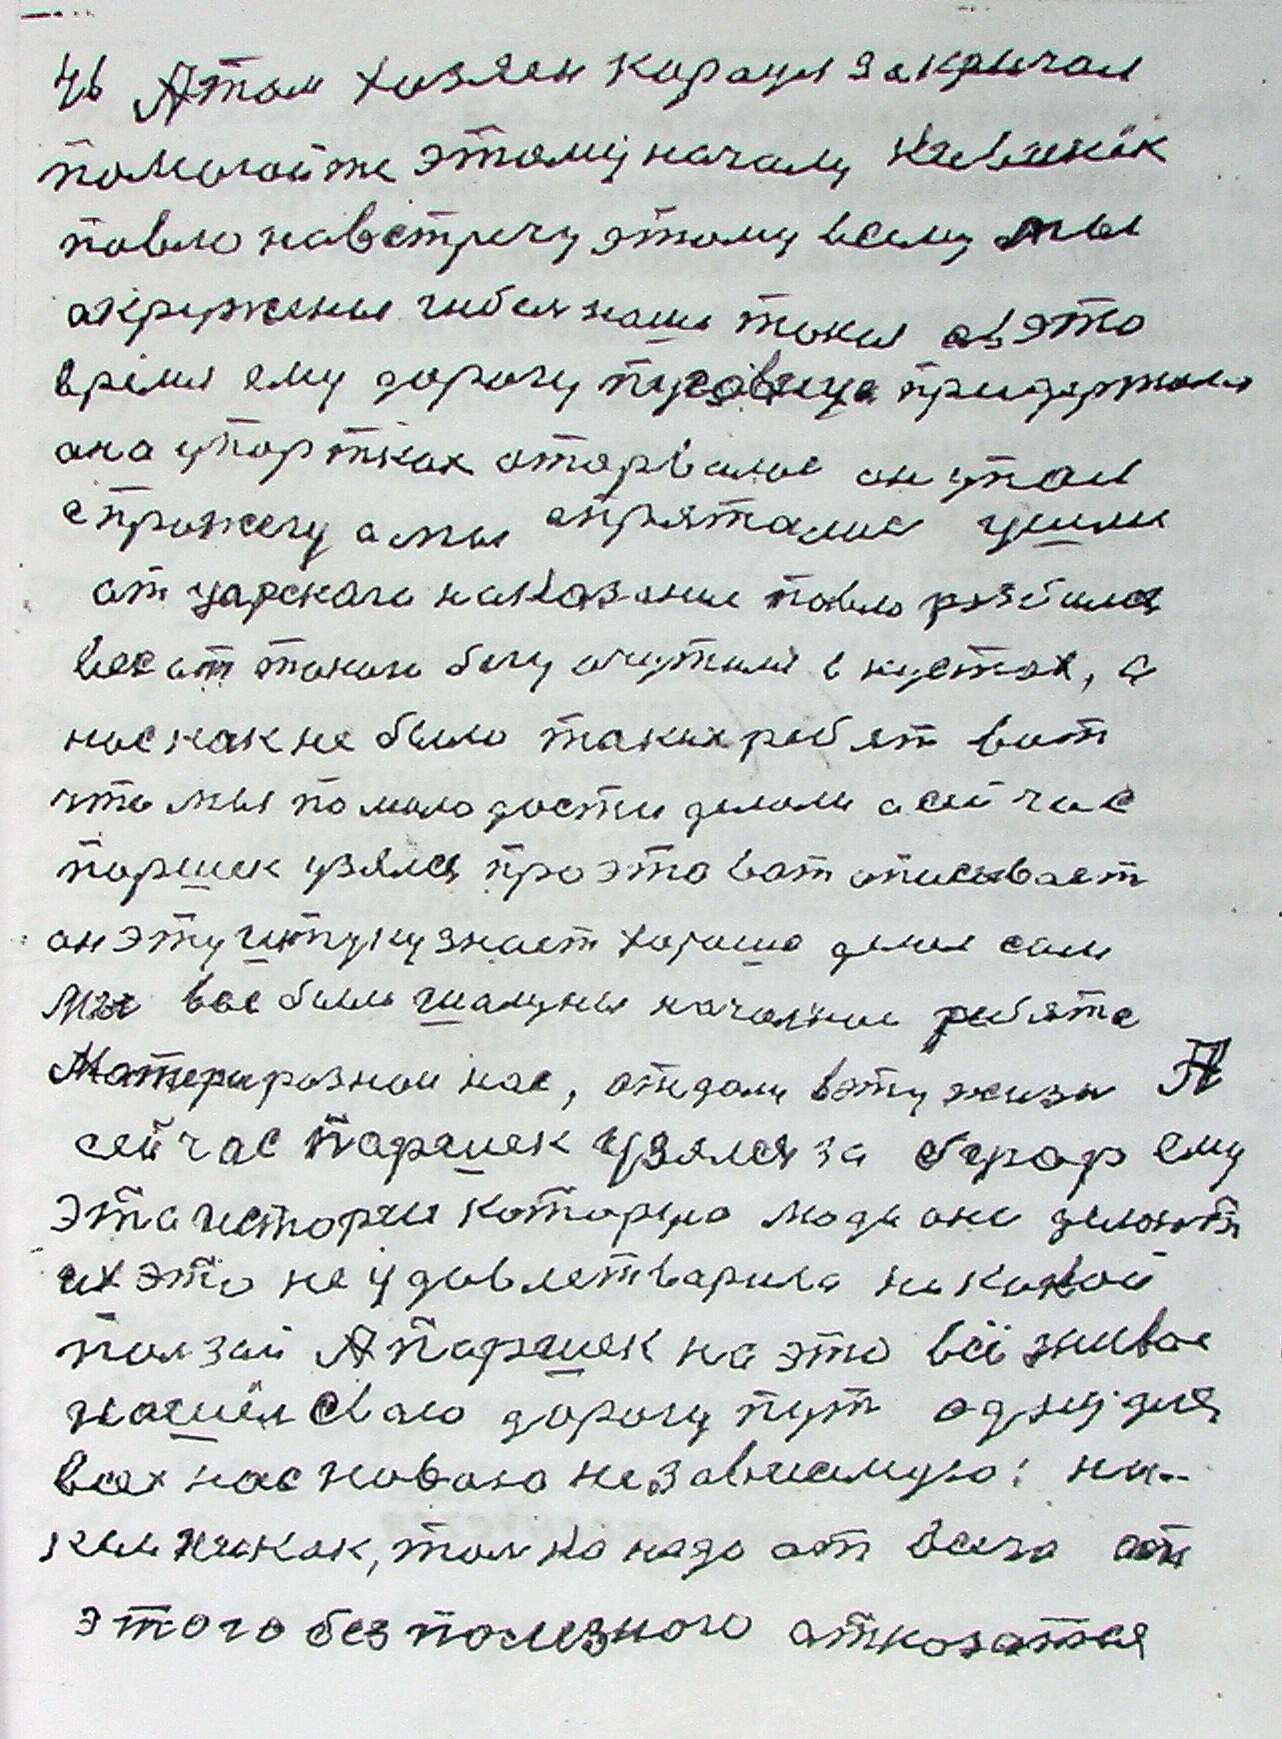 46 А там хозяен корацил закричал
помогайте этому началу
павло навстречу этому всему мы
акружения гибел наша такия а в это
время ему дорогу пусовица придержала
ана у портках оторвалас он упал
спрожегу а мы спряталис ушли
от царскаго наказание павло разбился
вес от такого бегу очутилса в кустах, а
нас как не было таких ребят вот
что мы по молодости делали а сейчас
паршек узялся про это вот описывает
он эту штуку знает хорошо делал сам
Мы все были шалуны началные ребята
Матери рознои нас, отдали в эту жизн А
сейчас Паршек узялся за бугор ему
эта история которую люди они делают
их это не удавлетварила никакой
ползай А Паршек на это всё живое
нашёл сваю дорогу пут одну для
всех нас новаю независимую: ни-
кем никак, толко надо от всего от
этого безполезного атказатся